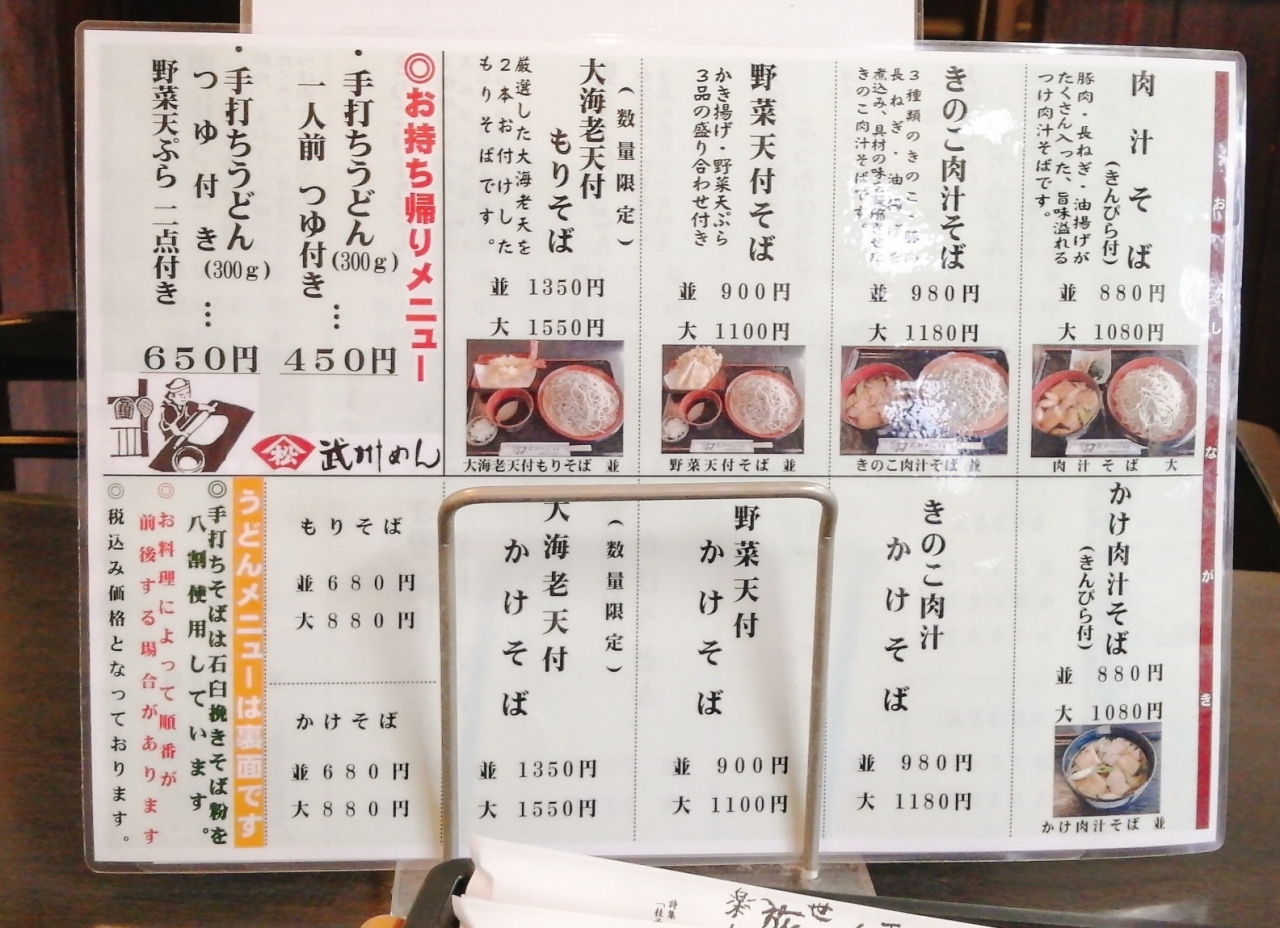 おしながき
肉汁そば
(きんぴら付)
豚肉・長ねぎ・油揚げが
たくさん入った、旨味溢れる
つけ肉汁そばです。
並 880円
大 1080円
肉汁そば 大
きのこ肉汁そば
3種類のきのこ・豚肉
長ねぎ・油揚げを
煮込み、具材の味を凝縮させた
きのこ肉汁そばです。
並 980円
大 1180円
きのこ肉汁そば 並
野菜天付そば
かき揚げ・野菜天ぷら
3品の盛り合わせ付き
並 900円
大 1100円
野菜天付そば 並
(数量限定)
大海老天付
もりそば
厳選した大海老天を
2本お付けした
もりそばです。
並 1350円
大 1550円
大海老天付もりそば 並
◎お持ち帰りメニュー
・手打ちうどん(300g)
一人前 つゆ付き…
450円
・手打ちうどん(300g)
つゆ付き…
野菜天ぷら二点付き
650円
松 武州めん
かけ肉汁そば
(きんぴら付)
並 880円
大 1080円
かけ肉汁そば 並
きのこ肉汁
かけそば
並 980円
大 1180円
野菜天付
かけそば
並 900円
大 1100円
(数量限定)
大海老天付
かけそば
並 1350円
大 1550円
もりそば
並680円
大880円
かけそば
並680円
大880円
うどんメニューは裏面です
◎手打ちそばは石臼挽きそば粉を
八割使用しています。
◎お料理によって順番が
前後する場合があります
◎税込み価格となっております。
詩集
楽
旅
世